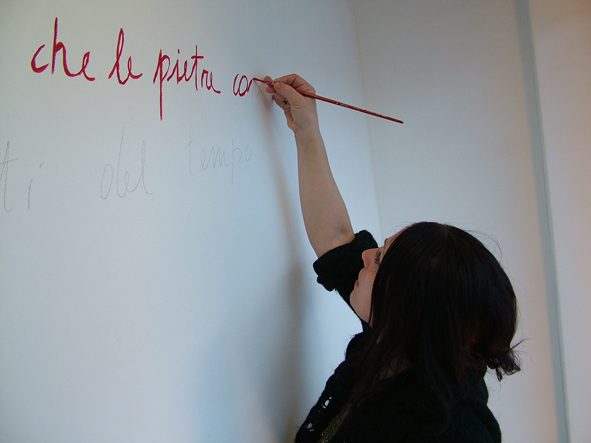 che le pietre con
ti del tempo